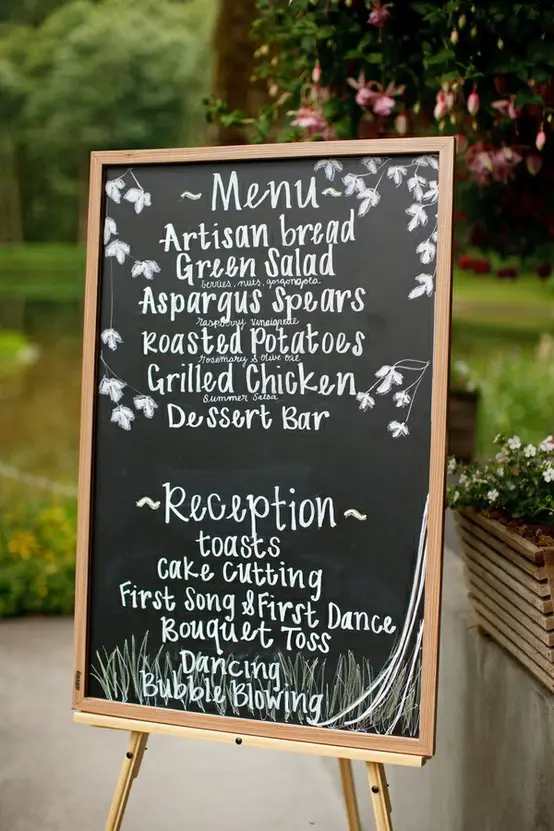 ~ Menu ~
Artisan bread
Green Salad
berries, nuts, gorgongola
Aspargus Spears
raspberry vinaigrette
Roasted Potatoes
rosemary & olive oil
Grilled Chicken
Summer Salsa
Dessert Bar
~ Reception ~
toasts
Cake Cutting
First Song & First Dance
Bouquet Toss
Dancing
Bubble Blowing